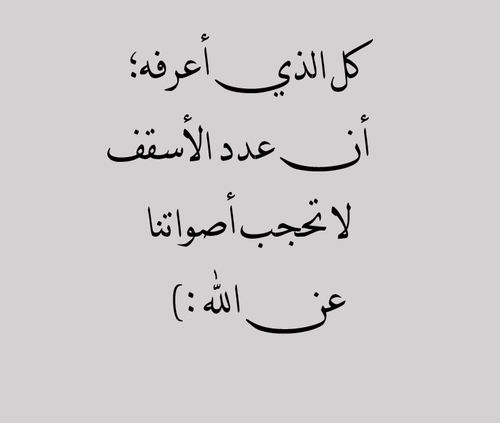 كل الذي أعرفه؛
أن عدد الأسقف
لا تحجب أصواتنا
عن الله :)